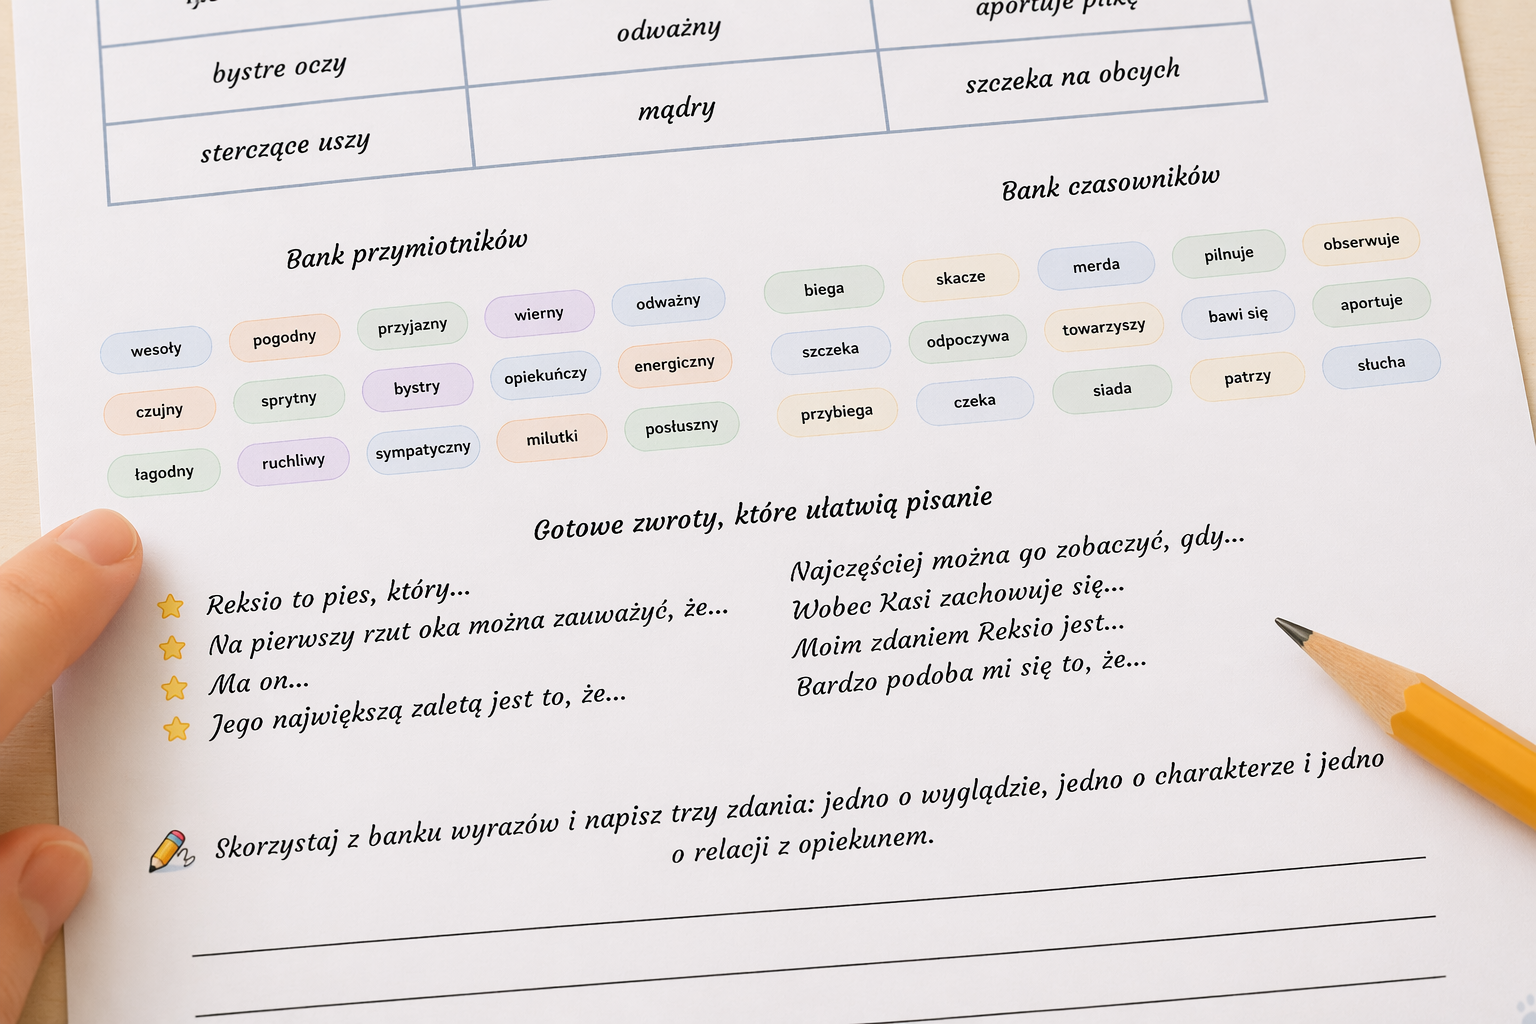 odważny
aportuje piłkę
bystre oczy
mądry
szczeka na obcych
sterczące uszy
Bank przymiotników
wesoły pogodny przyjazny wierny odważny
czujny sprytny bystry opiekuńczy energiczny
łagodny ruchliwy sympatyczny milutki posłuszny
Bank czasowników
biega skacze merda pilnuje obserwuje
szczeka odpoczywa towarzyszy bawi się aportuje
przybiega czeka siada patrzy słucha
Gotowe zwroty, które ułatwią pisanie
Reksio to pies, który...
Na pierwszy rzut oka można zauważyć, że...
Ma on...
Jego największą zaletą jest to, że...
Najczęściej można go zobaczyć, gdy...
Wobec Kasi zachowuje się...
Moim zdaniem Reksio jest...
Bardzo podoba mi się to, że...
Skorzystaj z banku wyrazów i napisz trzy zdania: jedno o wyglądzie, jedno o charakterze i jedno
o relacji z opiekunem.